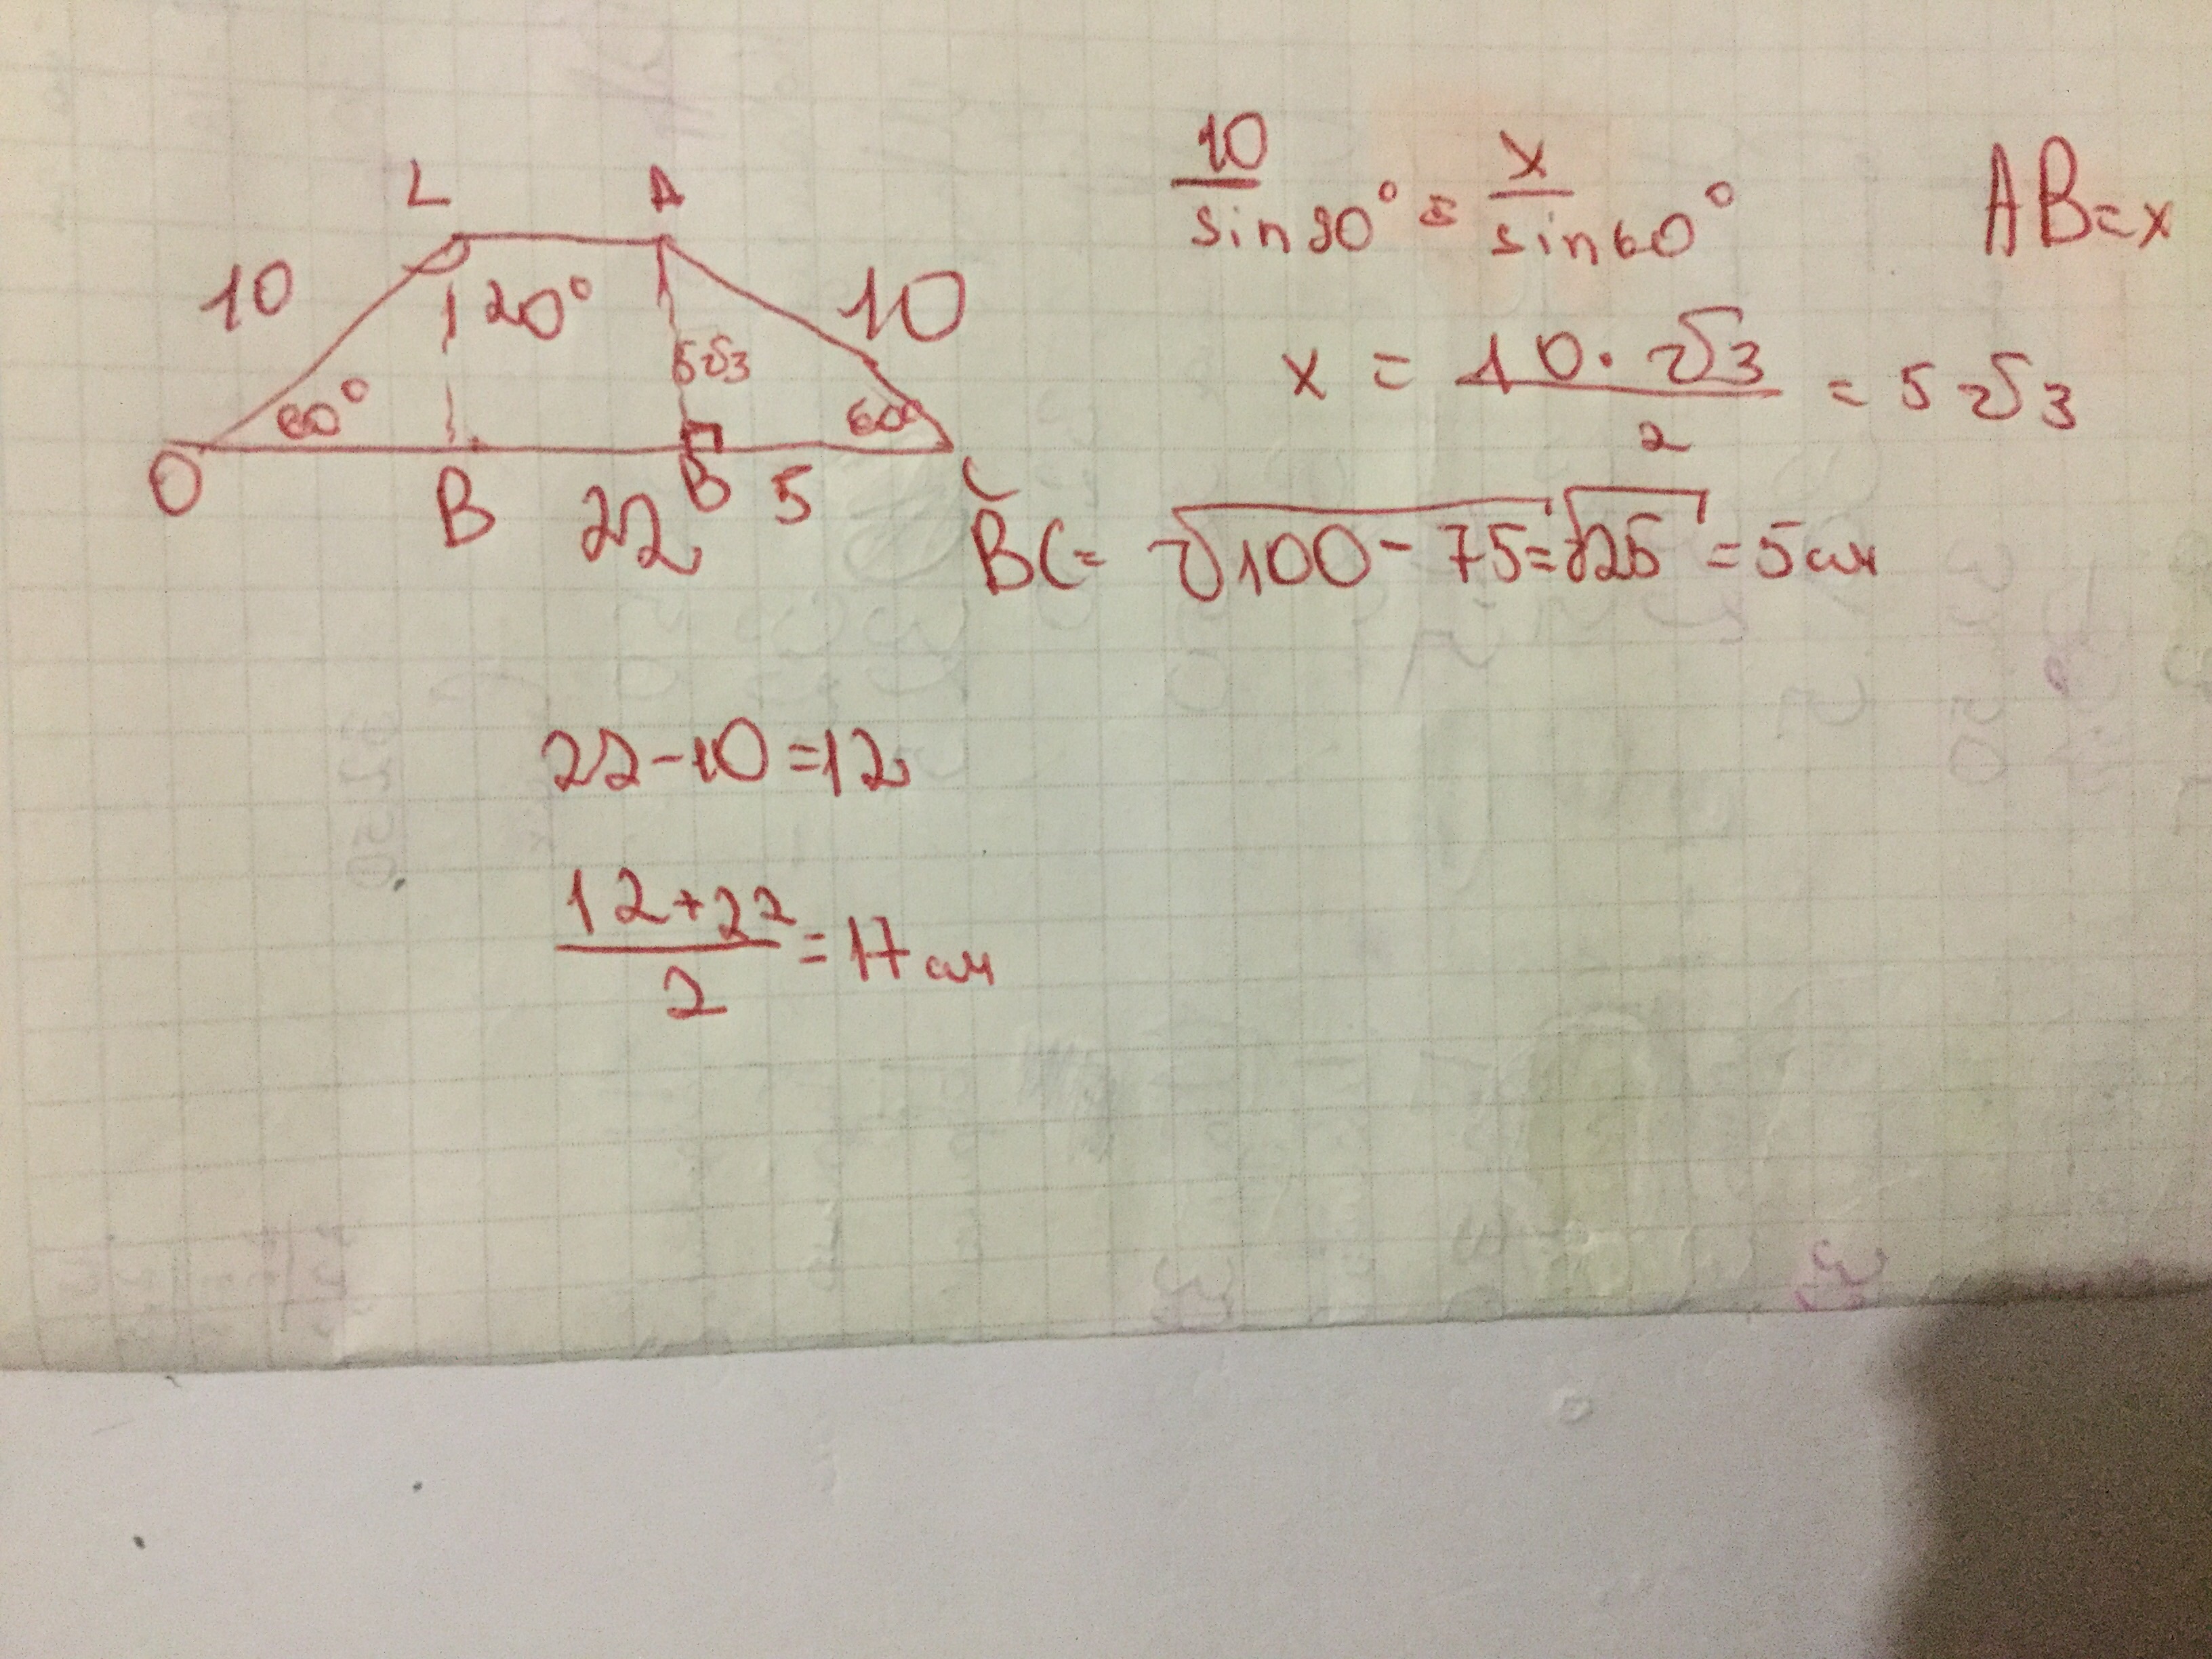 L A
10 120° 10
5√3
60° 60°
O B 22 B 5 C
10/sin90° = x/sin60° AB=x
x = 10·√3/2 = 5√3
BC= √100-75=√25 = 5см
22-10=12
12+22/2=17см